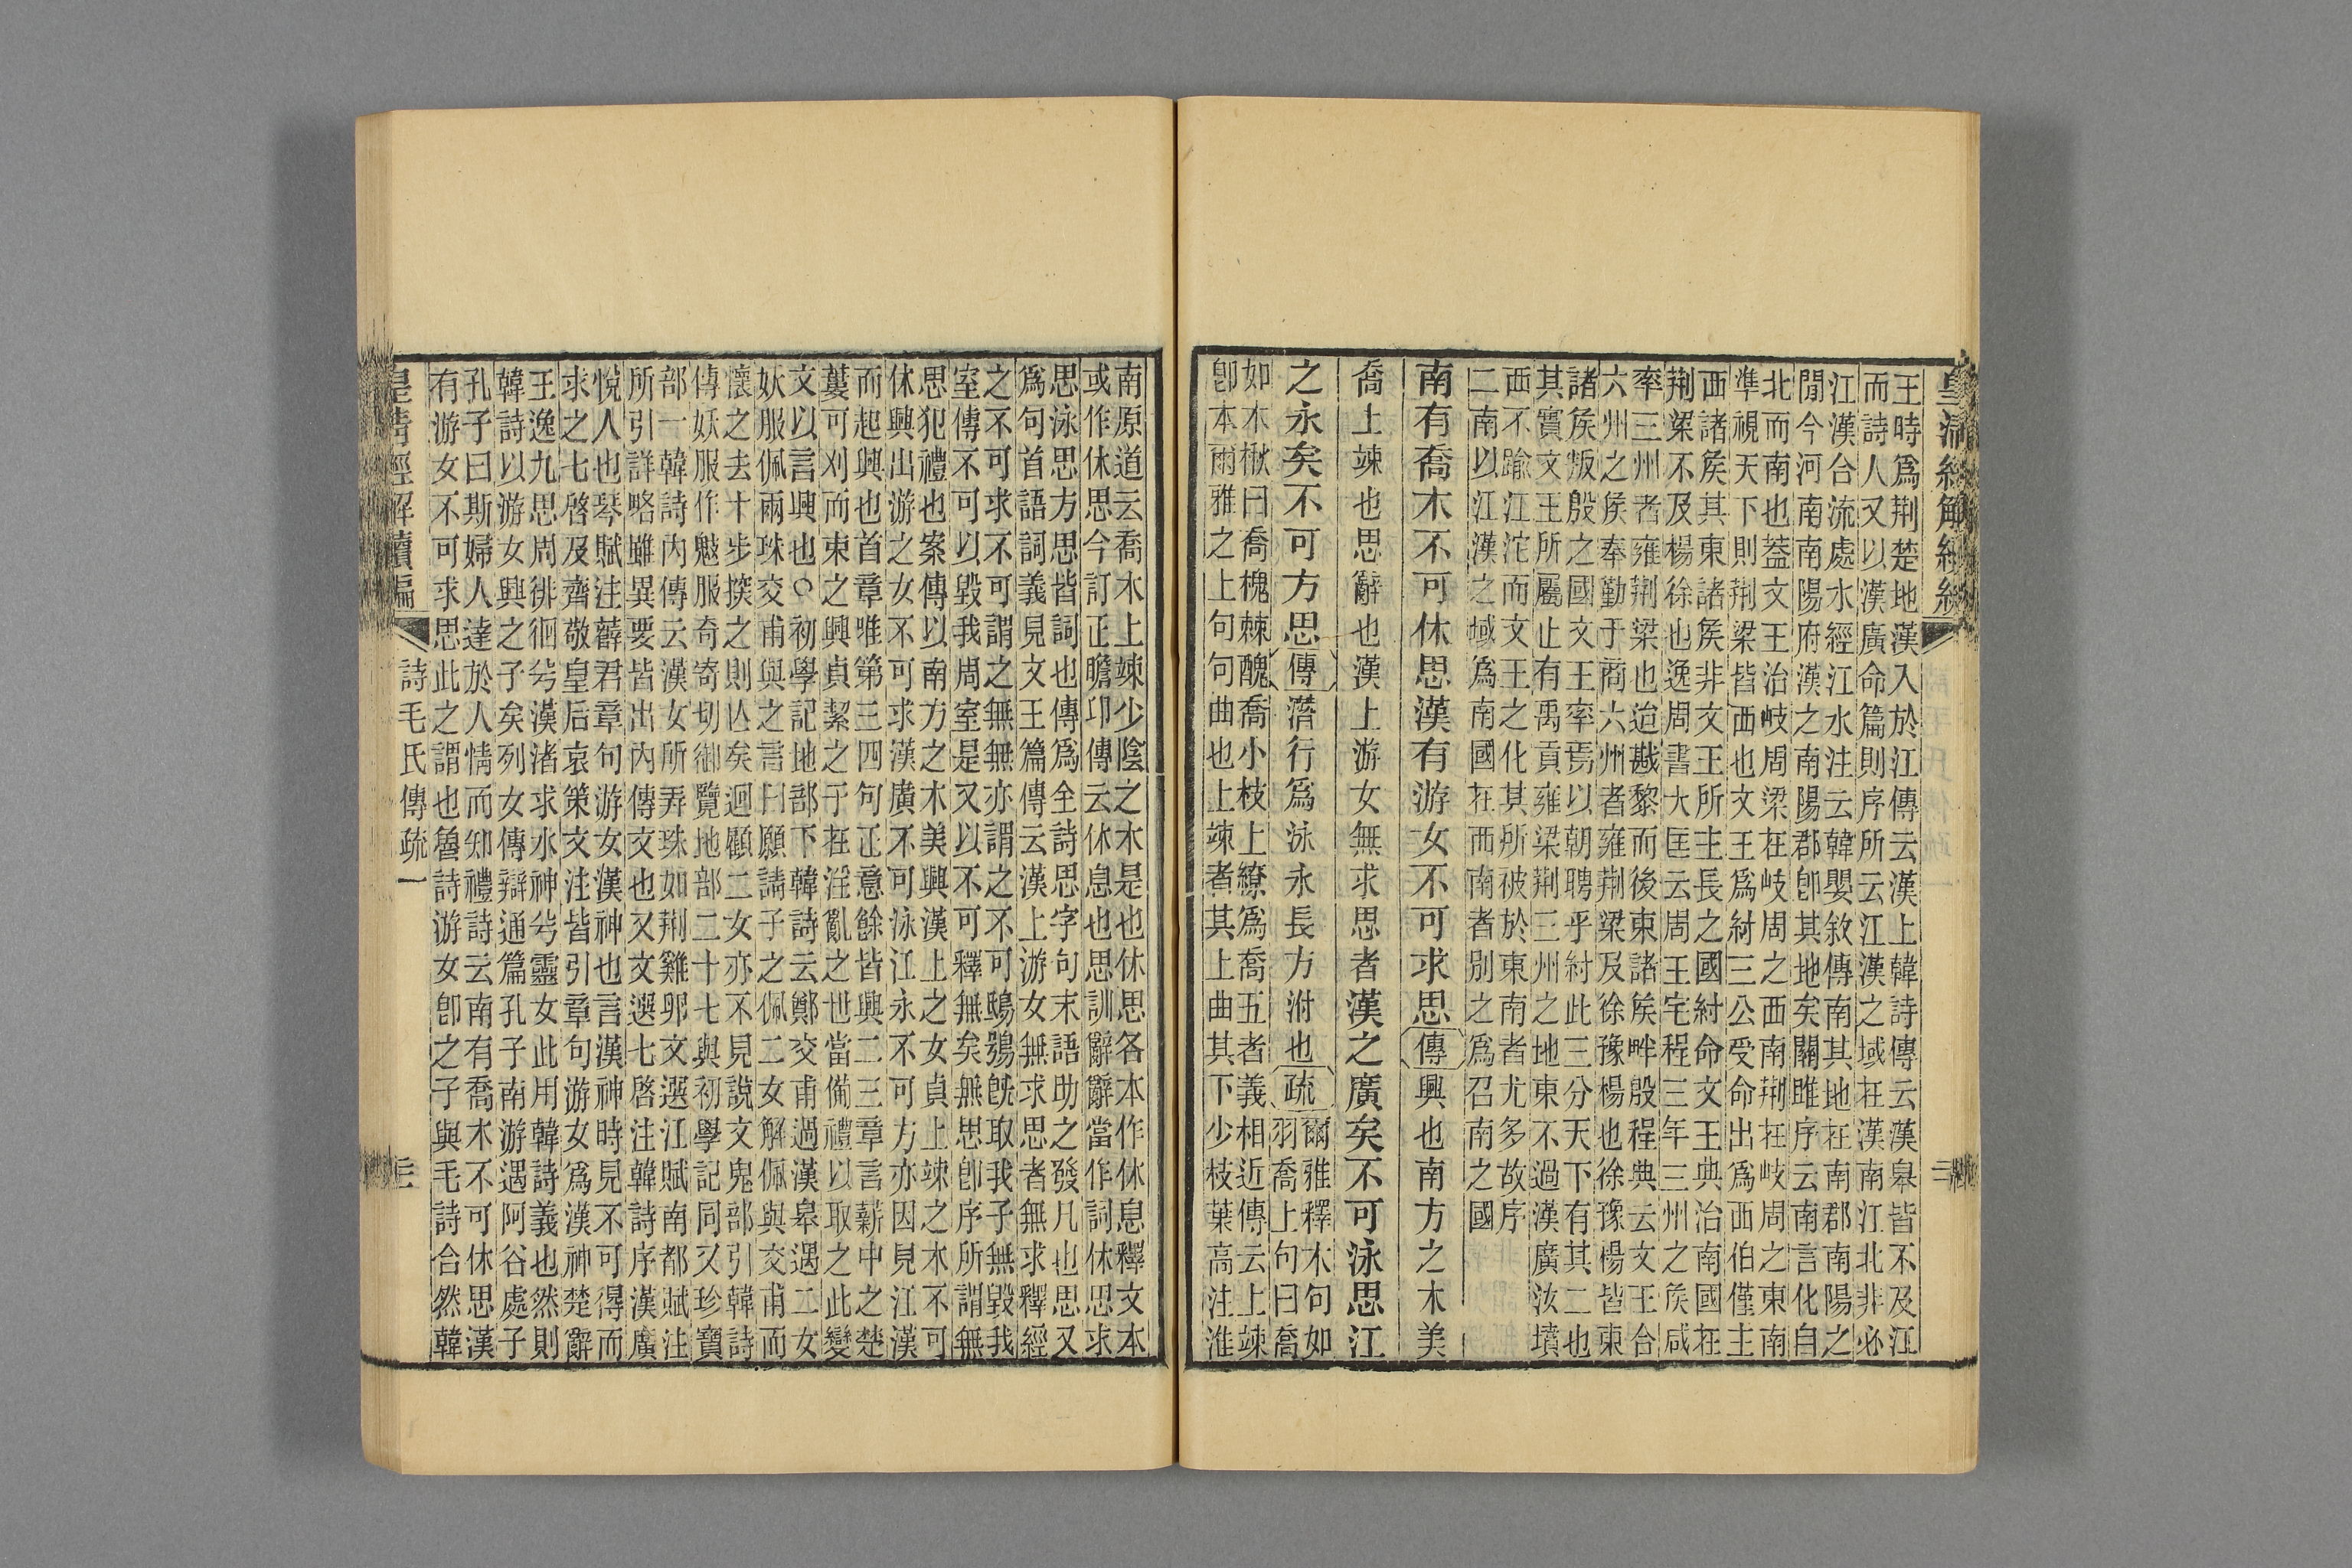 王時爲荆楚地漢入於江傳云漢上韓詩傳云漢皋皆不及江
而詩人又以漢廣命篇則序所云江漢之域在漢南江北非必
江漢合流處水經江水注云韓嬰敘傳南其地在南郡南陽之
閒今河南南陽府漢之南陽郡卽其地矣關雎序云南言化自
北而南也葢文王治岐周梁在岐周之西南荆在岐周之東南
準視天下則荆梁皆西也文王爲紂三公受命出爲西伯僅主
西諸矦其東諸矦非文王所主長之國紂命文王典治南國在
荆梁不及楊徐也逸周書大匡云周王宅程三年三州之矦咸
率三州者雍荆梁也迨戡黎而後東諸矦畔殷程典云文王合
六州之矦奉勤于商六州者雍荆梁及徐豫楊也徐豫楊皆東
諸矦叛殷之國文王率焉以朝聘乎紂此三分天下有其二也
其實文王所屬止有禹貢雍梁荆三州之地東不過漢廣汝墳
西不踰江沱而文王之化其所被於東南者尤多故序
二南以江漢之域爲南國在西南者別之爲召南之國
南有喬木不可休思漢有游女不可求思傳興也南方之木美
喬上竦也思辭也漢上游女無求思者漢之廣矣不可泳思江
之永矣不可方思傳潛行爲泳永長方泭也疏爾雅釋木句如
羽喬上句曰喬
如木楸曰喬槐棘醜喬小枝上繚爲喬五者義相近傳云上竦
卽本爾雅之上句句曲也上竦者其上曲其下少枝葉高注淮
南原道云喬木上竦少陰之木是也休思各本作休息釋文本
或作休思今訂正瞻卬傳云休息也思訓辭辭當作詞休思求
思泳思方思皆詞也傳爲全詩思字句末語助之發凡也思又
爲句首語詞義見文王篇傳云漢上游女無求思者無求釋經
之不可求不可謂之無無亦謂之不可鴟鴞旣取我子無毀我
室傳不可以毀我周室是又以不可釋無矣無思卽序所謂無
思犯禮也案傳以南方之木美興漢上之女貞上竦之木不可
休興出游之女不可求漢廣不可泳江永不可方亦因見江漢
而起興也首章唯第三四句正意餘皆興二三章言薪中之楚
蔞可刈而束之興貞絜之子在淫亂之世當備禮以取之此變
文以言興也○初學記地部下韓詩云鄭交甫過漢皋遇二女
妖服佩兩珠交甫與之言曰願請子之佩二女解佩與交甫而
懷之去十步探之則亾矣迴顧二女亦不見說文鬼部引韓詩
傳妖服作鬾服奇寄切御覽地部二十七與初學記同又珍寶
部一韓詩內傳云漢女所弄珠如荆雞卵文選江賦南都賦注
所引詳略雖異要皆出內傳文也又文選七啓注韓詩序漢廣
悅人也琴賦注薛君章句游女漢神也言漢神時見不可得而
求之七啓及齊敬皇后哀策文注皆引章句游女爲漢神楚辭
王逸九思周徘徊兮漢渚求水神兮靈女此用韓詩義也然則
韓詩以游女興之子矣列女傳辯通篇孔子南游遇阿谷處子
孔子曰斯婦人達於人情而知禮詩云南有喬木不可休思漢
有游女不可求思此之謂也魯詩游女卽之子與毛詩合然韓
皇清經解續編 詩毛氏傳疏一 三